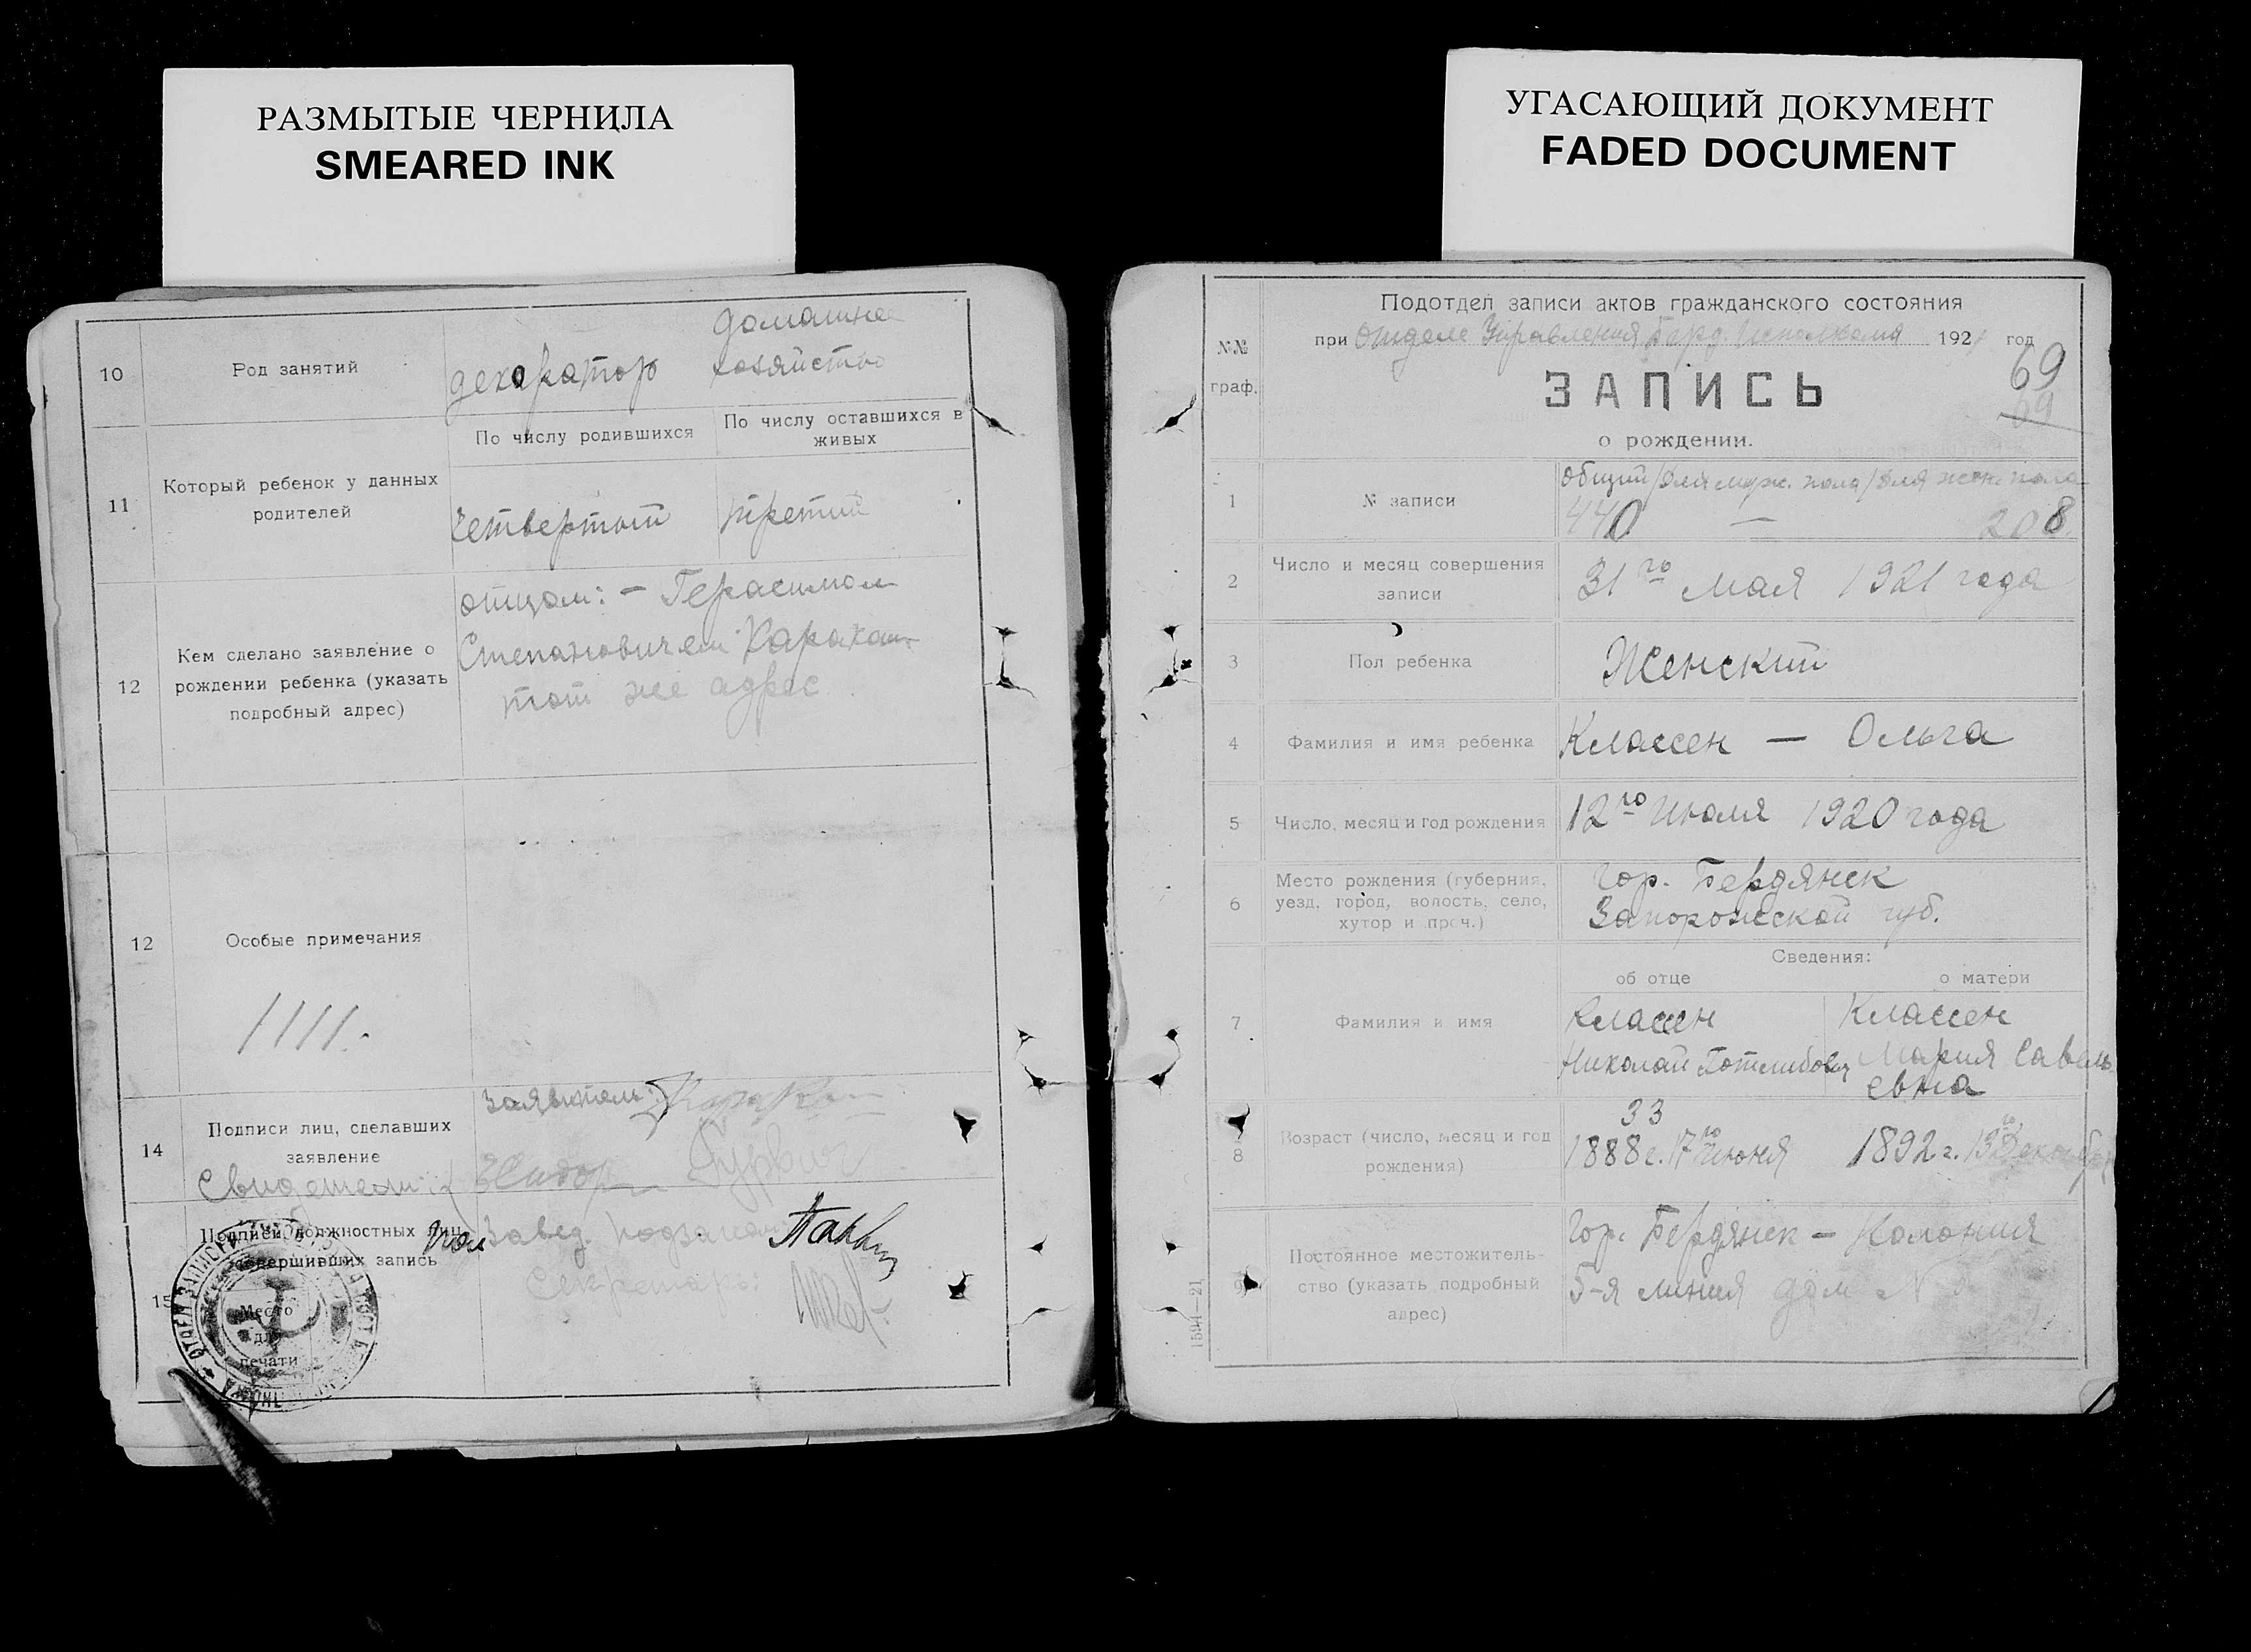 РАЗМЫТЫЕ ЧЕРНИЛА
SMEARED INK
УГАСАЮЩИЙ ДОКУМЕНТ
FADED DOCUMENT
10
Род занятий
декоратор
домашнее
хозяйство
11
Который ребенок у данных
родителей
По числу родившихся
По числу оставшихся в
живых
четвертый
третий
12
Кем сделано заявление о
рождении ребенка (указать
подробный адрес)
отцом: — Герасимом
Степановичем Каракаш
тот же адрес
12
Особые примечания
14
Подписи лиц, сделавших
заявление
Заявитель:
Свидетели:
15
Подписи должностных лиц,
совершивших запись
Завед.
Секретарь:
Место
для
печати
№№
граф.
Подотдел записи актов гражданского состояния
при Отделе Управления Берд. Исполкома 1921 год
69
69
ЗАПИСЬ
о рождении.
1
№ записи
общий/для муж. пола/для жен. пола
440 — 208
2
Число и месяц совершения
записи
31го мая 1921 года
3
Пол ребенка
Женский
4
Фамилия и имя ребенка
Классен — Ольга
5
Число, месяц и год рождения
12го Июля 1920 года
6
Место рождения (губерния,
уезд, город, волость, село,
хутор и проч.)
Гор. Бердянск
Запорожской губ.
Сведения:
об отце
о матери
7
Фамилия и имя
Классен
Николай Готлибович
Классен
Мария Савель
евна
8
Возраст (число, месяц и год
рождения)
33
1888 г. 17го Июня
1892 г. 13го Декабря
9
Постоянное местожитель-
ство (указать подробный
адрес)
Гор. Бердянск — Колония
5-я линия дом №
1594—21